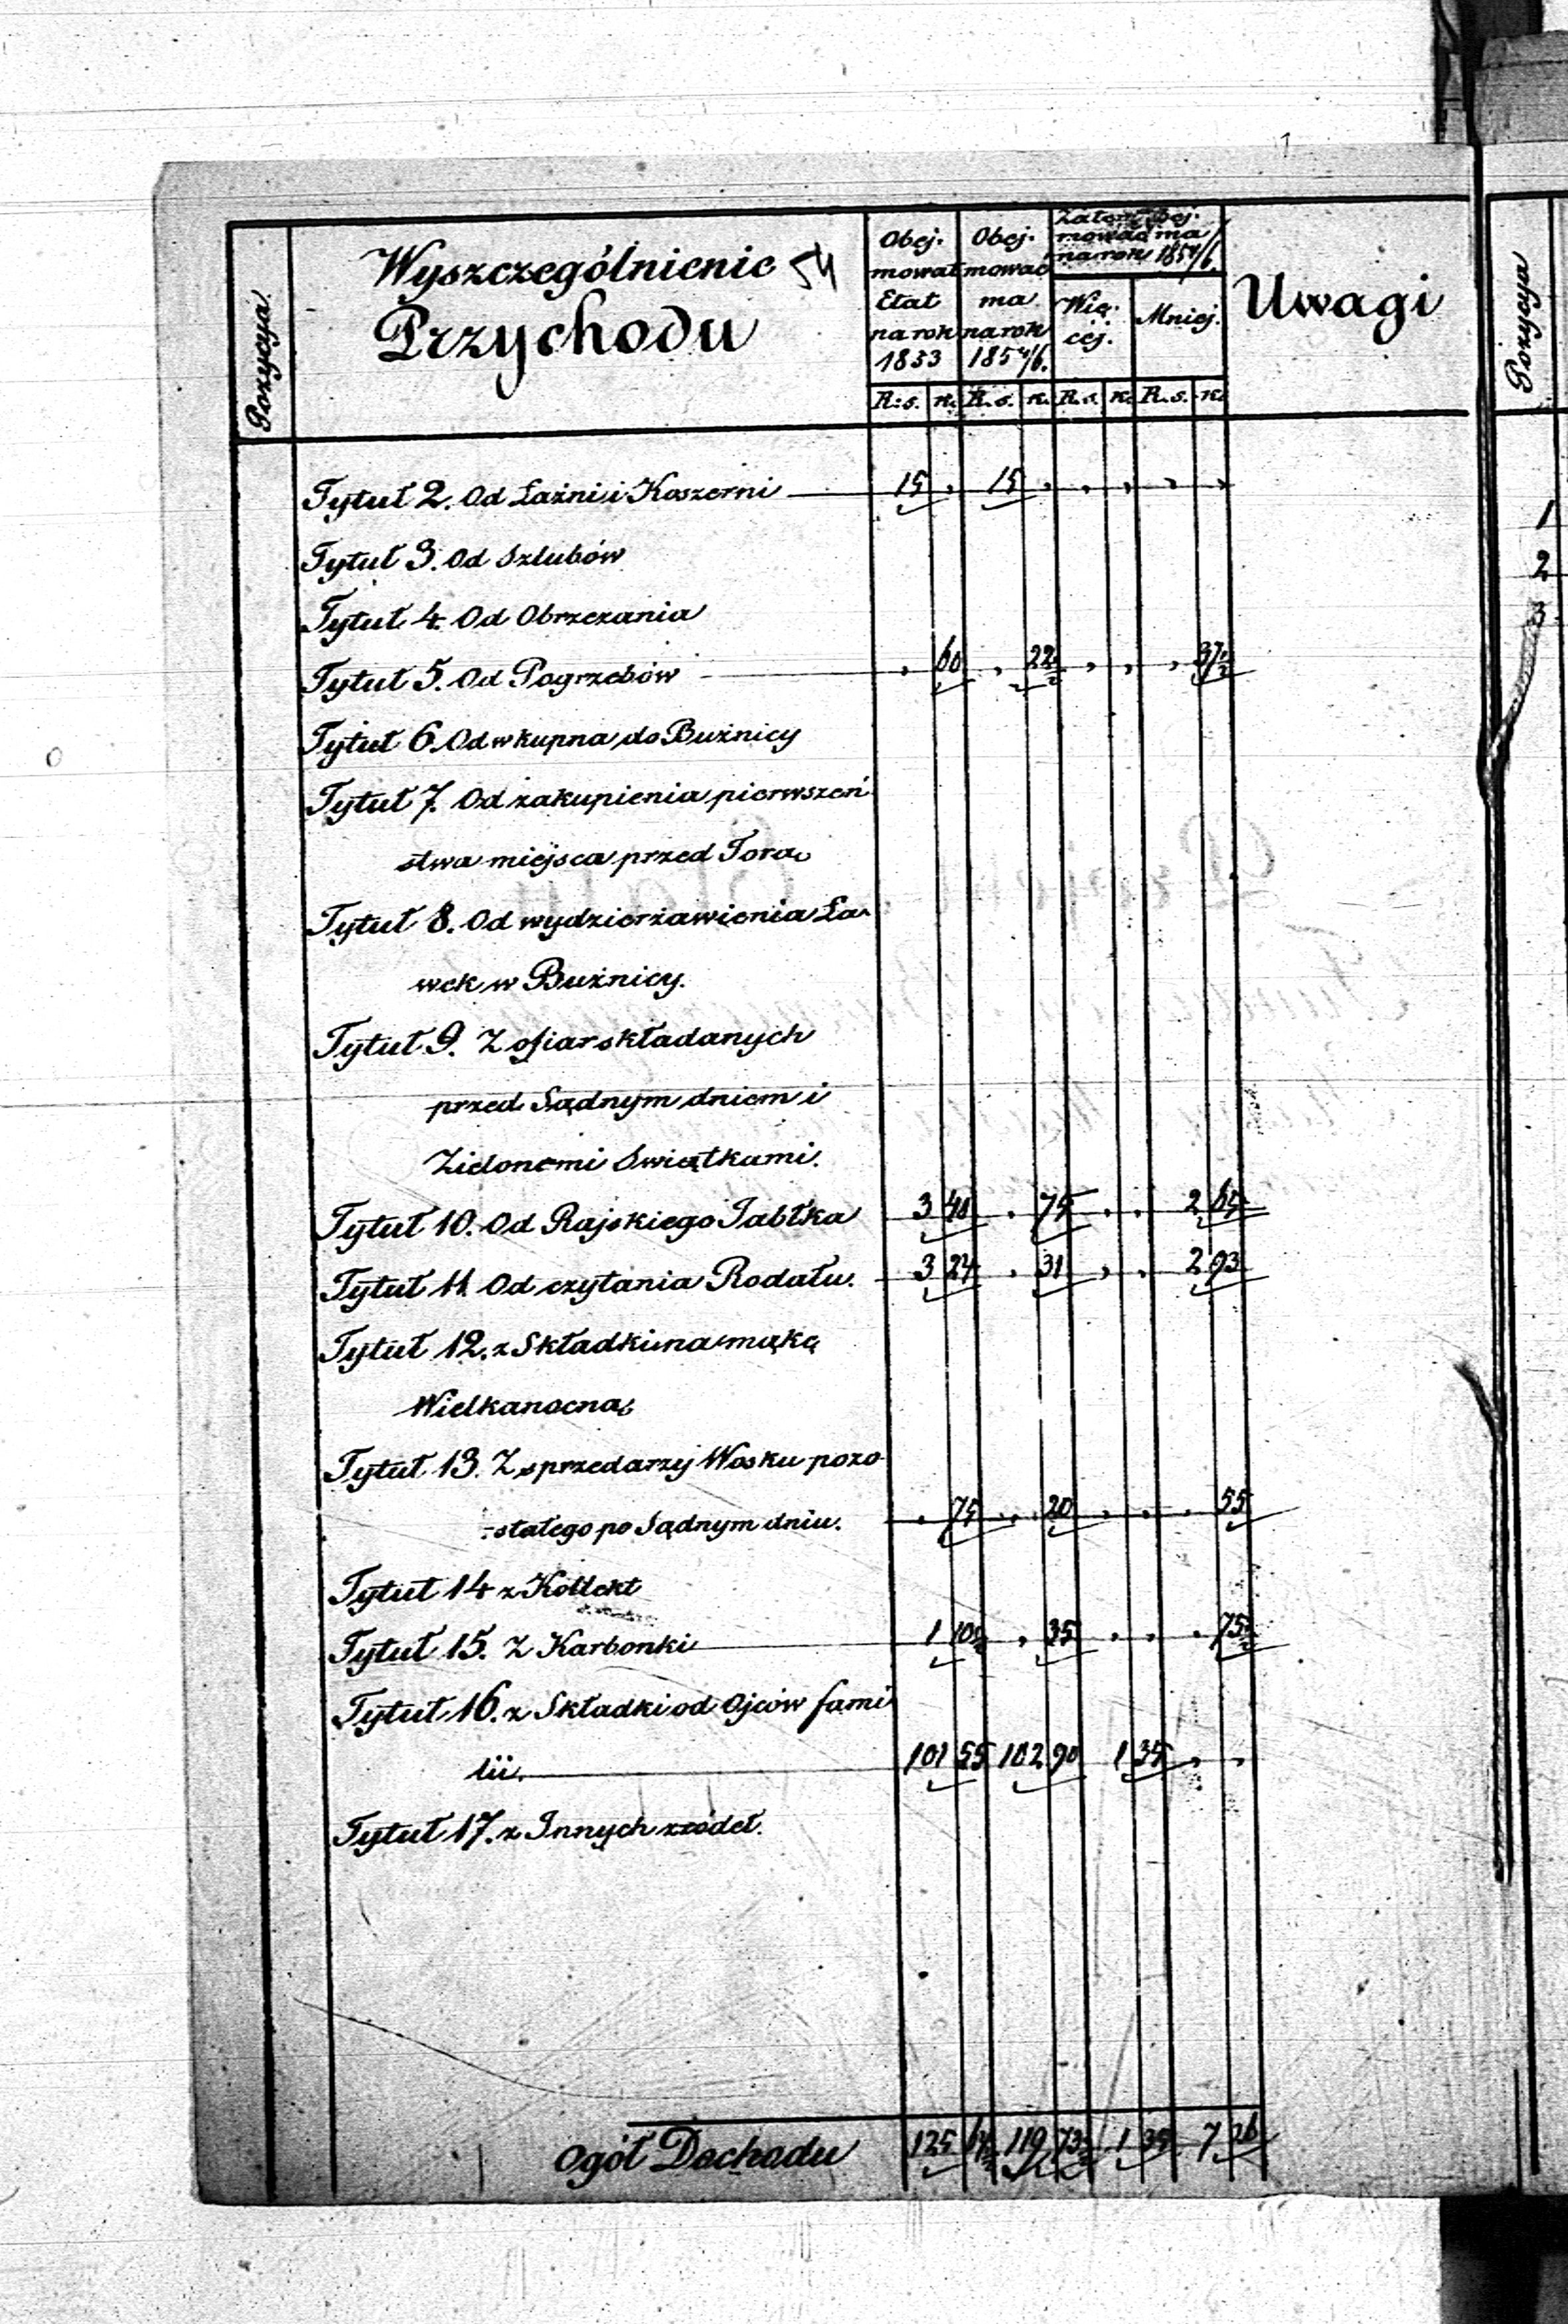 1
Pozycya
Wyszczególnienie 54
Przychodu
Obej-
mował
Etat
na rok
1853
Obej-
mować
ma
na rok
185 4/6.
Zatem obej-
mować ma
na rok 185 4/6.
Wię-
cej.
Mniej.
Uwagi
R: s. k. R. s. k. R. s. k. R. s. k.
Tytuł 2. Od Łaźni i Koszerni 15 „ 15 „ „ „ „ „
Tytuł 3. Od Szlubów
Tytuł 4. Od Obrzezania
Tytuł 5. Od Pogrzebów „ 60 „ 22½ „ „ „ 37½
Tytuł 6. Od wkupna do Bużnicy
Tytuł 7. Od zakupienia pierwszeń
stwa miejsca przed Torą
Tytuł 8. Od wydzierżawienia Ła-
wek w Bużnicy.
Tytuł 9. Z ofiar składanych
przed Sądnym dniem i
Zielonemi Swiątkami.
Tytuł 10. Od Rajskiego Jabłka 3 40 „ 75 „ „ 2 65
Tytuł 11. Od czytania Rodału. 3 24 „ 31 „ „ 2 93
Tytuł 12. z Składki na mąkę
Wielkanocną
Tytuł 13. Z sprzedarzy Wosku pozo
-stałego po Sądnym dniu. „ 75 „ 20 „ „ „ 55
Tytuł 14 z Kollekt
Tytuł 15. Z Karbonki 1 10½ „ 35 „ „ „ 75½
Tytuł 16. z Składki od Ojców fami
lii. 101 55 102 90 1 35 „ „
Tytuł 17. z Innych zródeł.
Ogół Dochodu 125 64½ 119 73½ 1 35 7 26
Pozycya
1
2
3